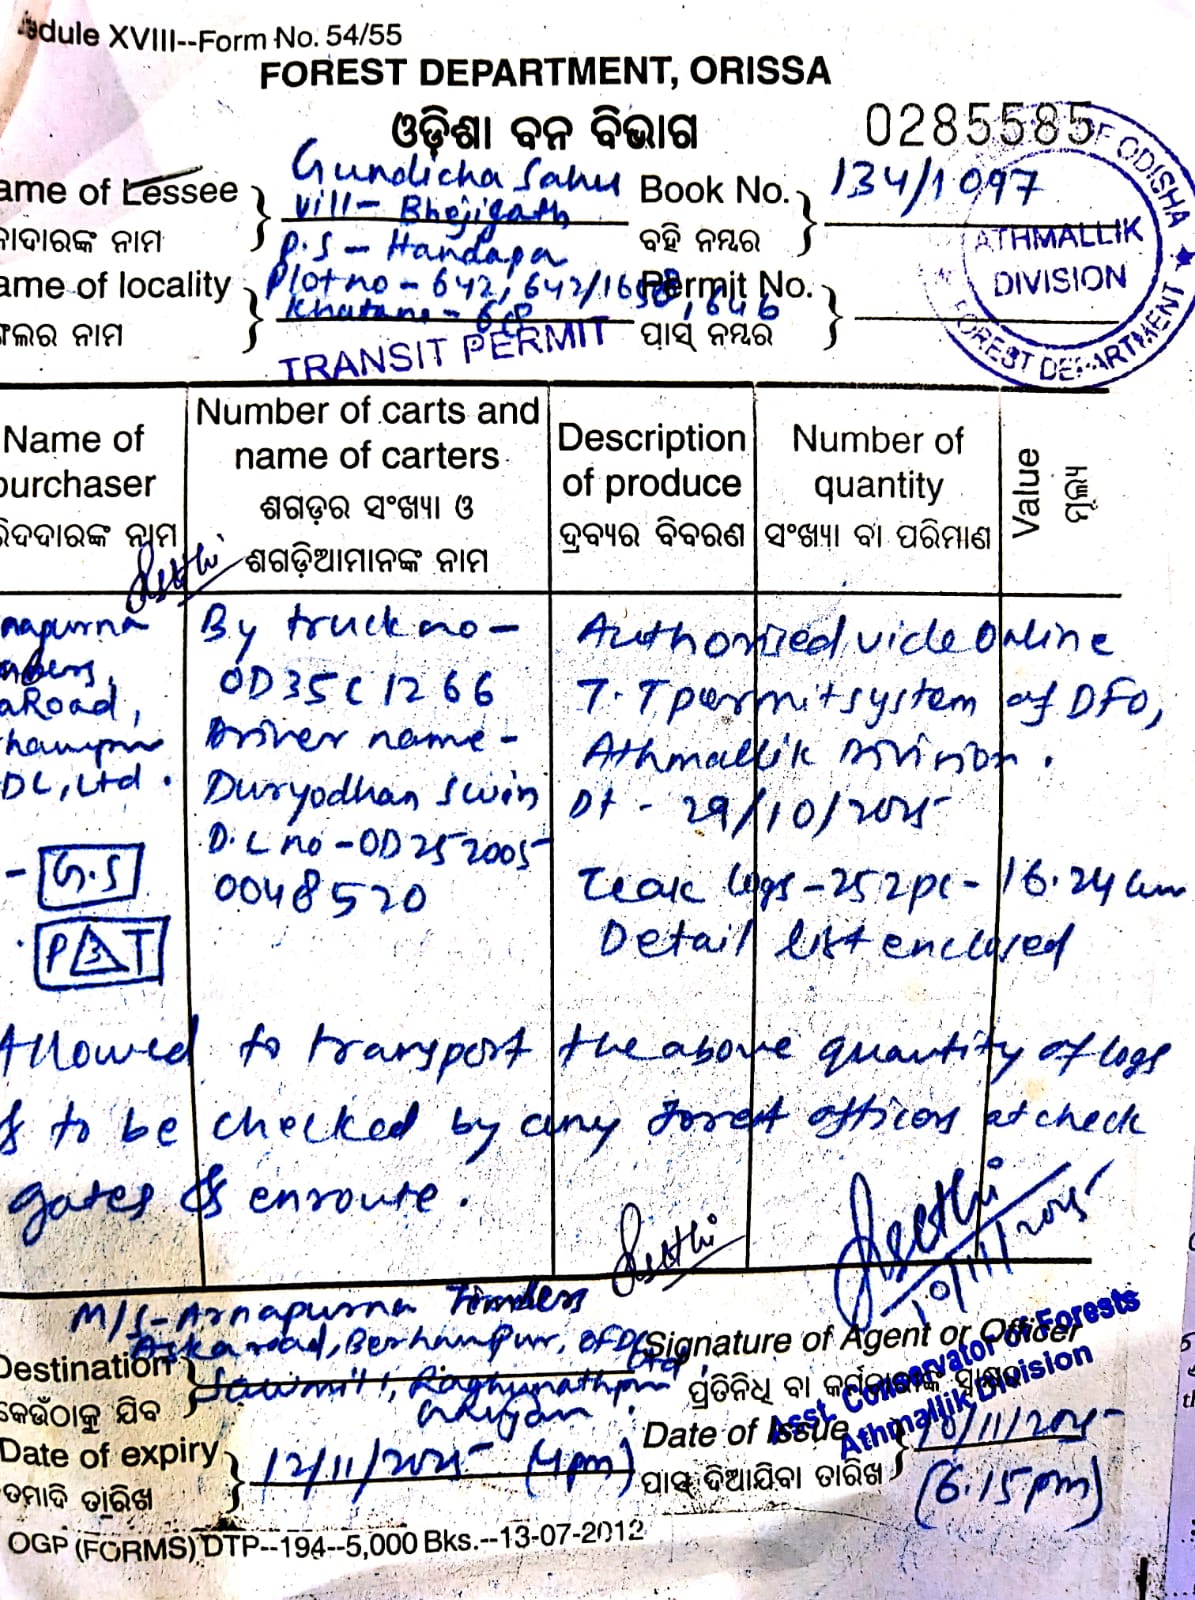 edule XVIII--Form No. 54/55
FOREST DEPARTMENT, ORISSA
ଓଡ଼ିଶା ବନ ବିଭାଗ
0285585
OF ODISHA
ATHMALLIK
DIVISION
FOREST DEPARTMENT
ame of Lessee
ନାଦାରଙ୍କ ନାମ
Gundicha Sahu
Vill- Bhejigath
P.S - Handapa
Book No. 134/1097
ବହି ନମ୍ବର
ame of locality
ଙ୍ଗଲର ନାମ
Plot no - 642, 642/1658, 646
Khatano - 
Permit No.
ପାସ୍ ନମ୍ବର
TRANSIT PERMIT
Name of
purchaser
ରିଦଦାରଙ୍କ ନାମ
Number of carts and
name of carters
ଶଗଡ଼ର ସଂଖ୍ୟା ଓ
ଶଗଡ଼ିଆମାନଙ୍କ ନାମ
Description
of produce
ଦ୍ରବ୍ୟର ବିବରଣ
Number of
quantity
ସଂଖ୍ୟା ବା ପରିମାଣ
Value
ମୂଲ୍ୟ
napurna
mbers,
aRoad,
hampur
DC, Ltd.
- G.S
P 3 T
By truck no -
OD35C1266
Driver name -
Duryodhan Swin
D.L no - OD252005
0048520
Authorized vide Online
T.T permit system of DFO,
Athmallik Division.
Dt - 29/10/2025
Teak logs - 252pc - 16.24 cum
Detail list enclosed
Allowed to transport the above quantity of logs
& to be checked by any forest officers at check
gates & enroute.
10/11/2025
M/S- Annapurna Timbers
Aska road, Berhampur, OFDC Ltd,
Sawmill, Raghunathpur
Destination
କେଉଁଠାକୁ ଯିବ
Signature of Agent or Officer
ପ୍ରତିନିଧି ବା କର୍ମଚାରୀଙ୍କ ସ୍ୱାକ୍ଷର
Asst. Conservator of Forests
Athmallik Division
Date of expiry 12/11/2025 (4pm)
ତମାଦି ତାରିଖ
Date of Issue 10/11/2025
ପାସ୍ ଦିଆଯିବା ତାରିଖ
(6.15pm)
OGP (FORMS) DTP--194--5,000 Bks.--13-07-2012